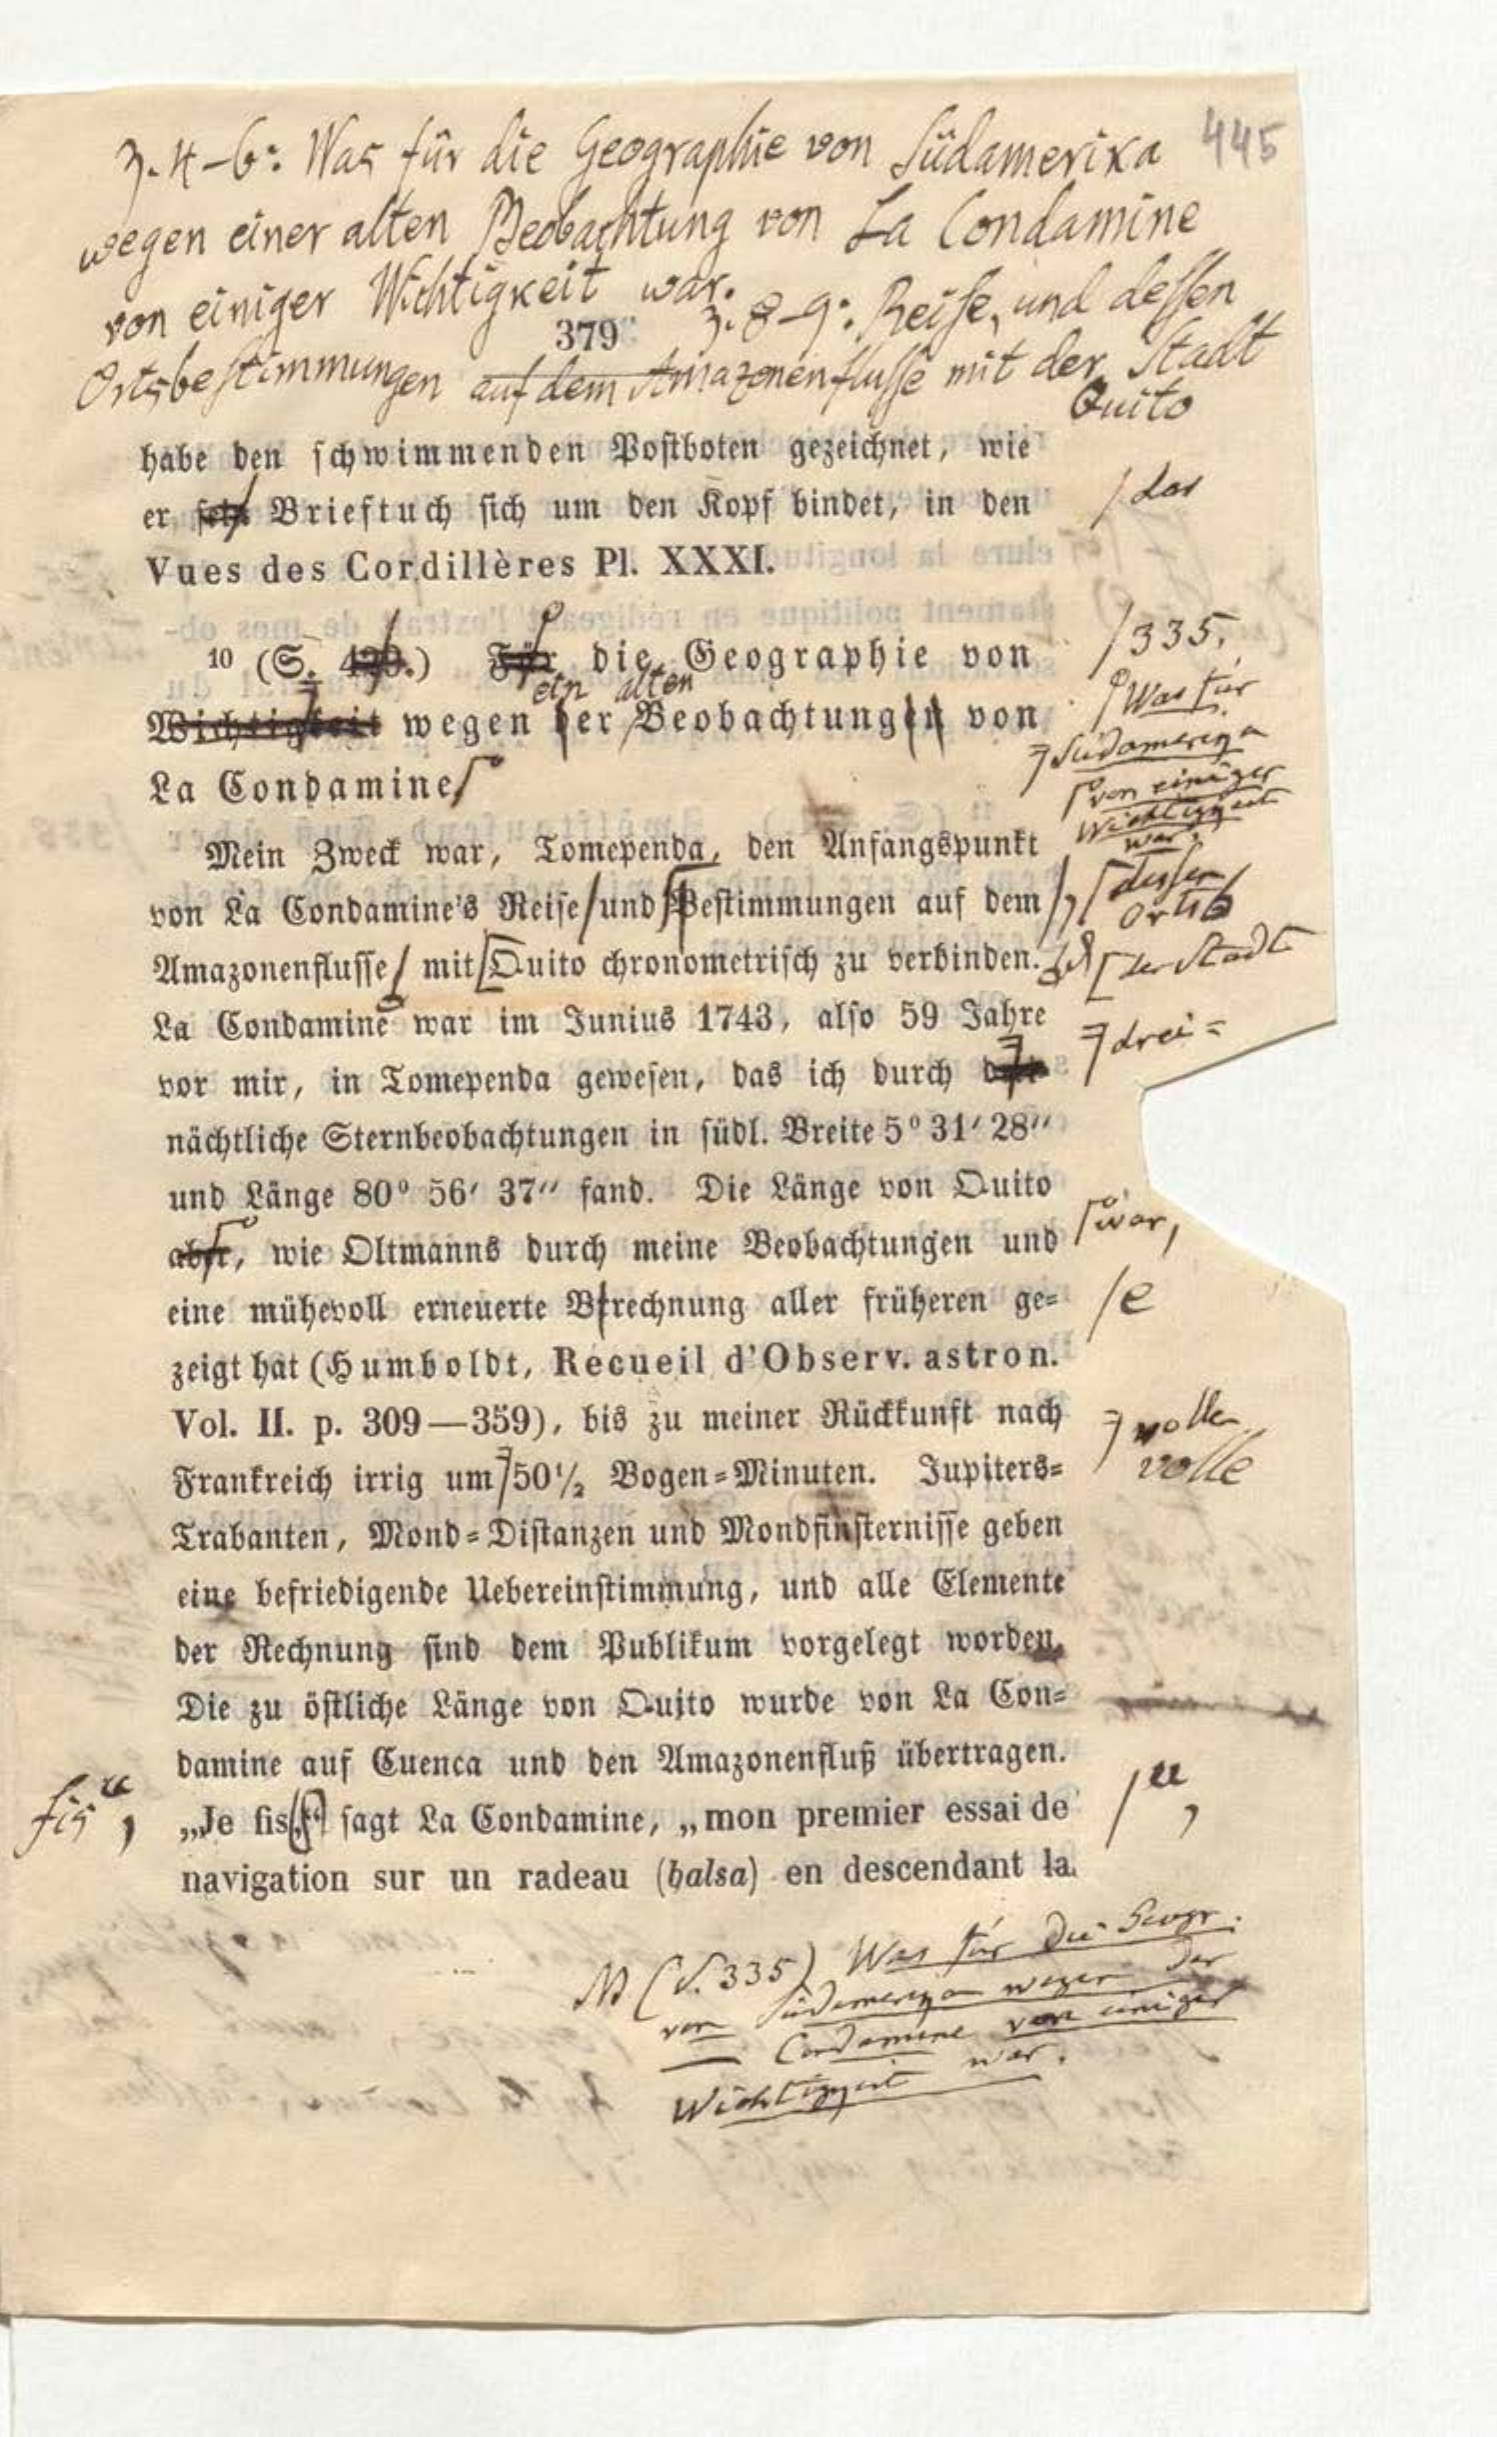 445
Z. 4-6: Was für die Geographie von Südamerika
wegen einer alten Beobachtung von La Condamine
von einiger Wichtigkeit war.
379
Z. 8-9: Reise, und dessen
Ortsbestimmungen auf dem Amazonenflusse mit der Stadt
Quito
habe den schwimmenden Postboten gezeichnet, wie
er sein Brieftuch sich um den Kopf bindet, in den
/ das
Vues des Cordillères Pl. XXXI.
10 (S. 4.) Für die Geographie von
/ 335.
Was für
ein alten
Wichtigkeit wegen der Beobachtungen von
Südamerika
La Condamine
von einiger
Wichtigkeit
war.
Mein Zweck war, Tomependa, den Anfangspunkt
von La Condamine's Reise und Bestimmungen auf dem
/, dessen
Orts
Amazonenflusse mit Quito chronometrisch zu verbinden.
der Stadt
La Condamine war im Junius 1743, also 59 Jahre
drei=
vor mir, in Tomependa gewesen, das ich durch
nächtliche Sternbeobachtungen in südl. Breite 5° 31′ 28″
und Länge 80° 56′ 37″ fand. Die Länge von Quito
aber, wie Oltmanns durch meine Beobachtungen und
war,
eine mühevoll erneuerte Brechnung aller früheren ge=
/ e
zeigt hat (Humboldt, Recueil d'Observ. astron.
Vol. II. p. 309—359), bis zu meiner Rückkunft nach
volle
Frankreich irrig um 50½ Bogen=Minuten. Jupiters=
volle
Trabanten, Mond=Distanzen und Mondfinsternisse geben
eine befriedigende Uebereinstimmung, und alle Elemente
der Rechnung sind dem Publikum vorgelegt worden.
Die zu östliche Länge von Quito wurde von La Con=
damine auf Cuenca und den Amazonenfluß übertragen.
fis“,
„Je fis sagt La Condamine, „mon premier essai de
/ “,
navigation sur un radeau (balsa) en descendant la
(S. 335) Was für die Geogr.
von Südamerika wegen der
— Condamine von einiger
Wichtigkeit war.